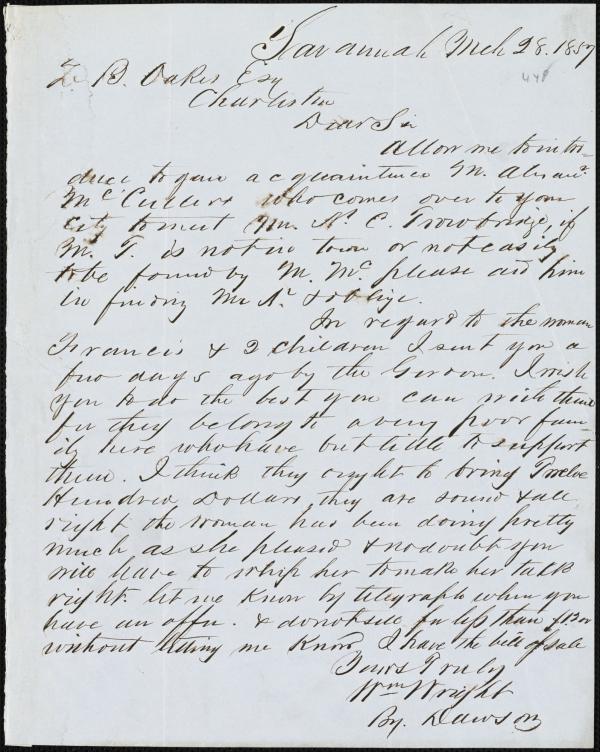 Savannah Mch 28. 1857
Z. B. Oakes Esq
Charleston
Dear Sir
Allow me to intro-
duce to your acquaintence M.
Mc who comes over to your
City to meet Mr. N. C. Trowbridge, if
M. T. is not in town or not easily
to be found by M. Mc please aid him
in finding Mr N. & oblige.
In regard to the woman
Francis & 2 children I sent you a
few days ago by the Gordon. I wish
you to do the best you can with them
for they belong to a very poor fam-
ily here who have but little to support
them. I think they ought to bring Twelve
Hundred Dollars they are sound & all
right the woman has been doing pretty
much as she pleased & no doubt you
will have to whip her to make her talk
right. let me know by telegraph when you
have an offer. & do not sell for less than
without letting me know, I have the bill of sale
Yours Truly
Wm Wright
By. Dawson